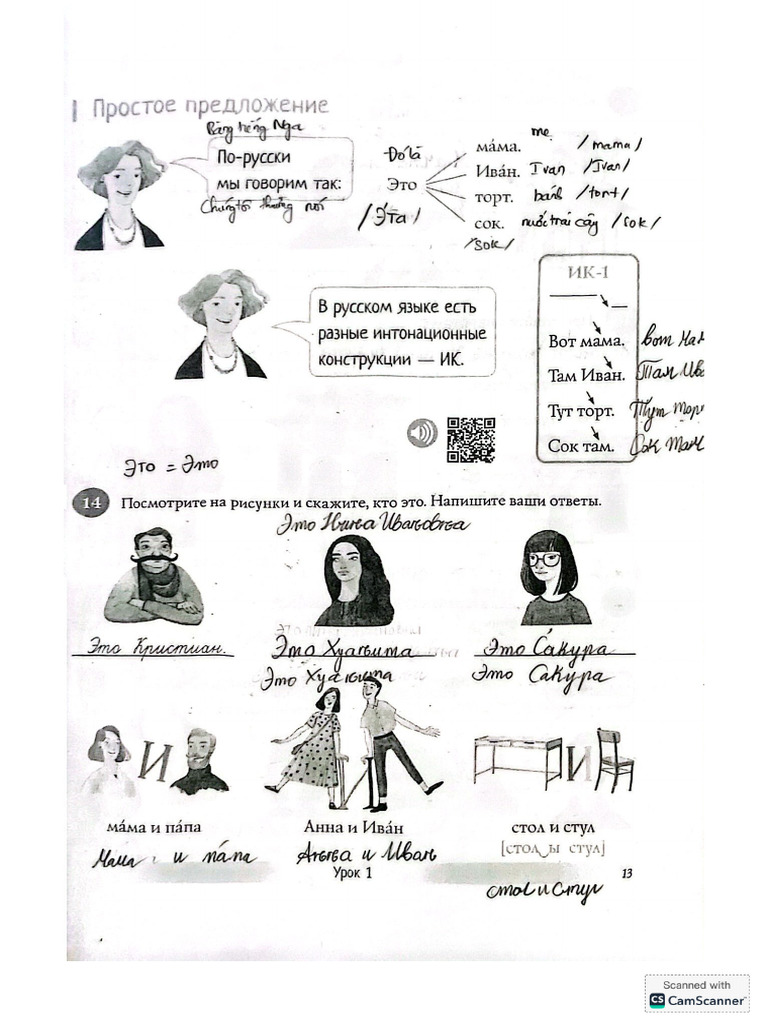 Простое предложение
Bằng tiếng Nga
По-русски
мы говорим так:
Chúng tôi thường nói
Đó là
Это
/Э́та/
ма́ма. mẹ /mama/
Ива́н. Ivan /Ivan/
торт. bánh /tort/
сок. nước trái cây /sok/
/sok/
В русском языке есть
разные интонационные
конструкции — ИК.
ИК-1
Вот мама. Вот
Там Иван. Там
Тут торт. Тут
Сок там. Сок
Это = Это
14 Посмотрите на рисунки и скажите, кто это. Напишите ваши ответы.
Это
Это Кристиан. Это Хуанита Это Са́кура
Это Хуанита Это Сакура
И И
ма́ма и па́па Анна и Ива́н стол и стул
[стол‿ы стул]
Мама и па́па Анна и Иван
Урок 1 13
стол и стул
Scanned with
CS CamScanner